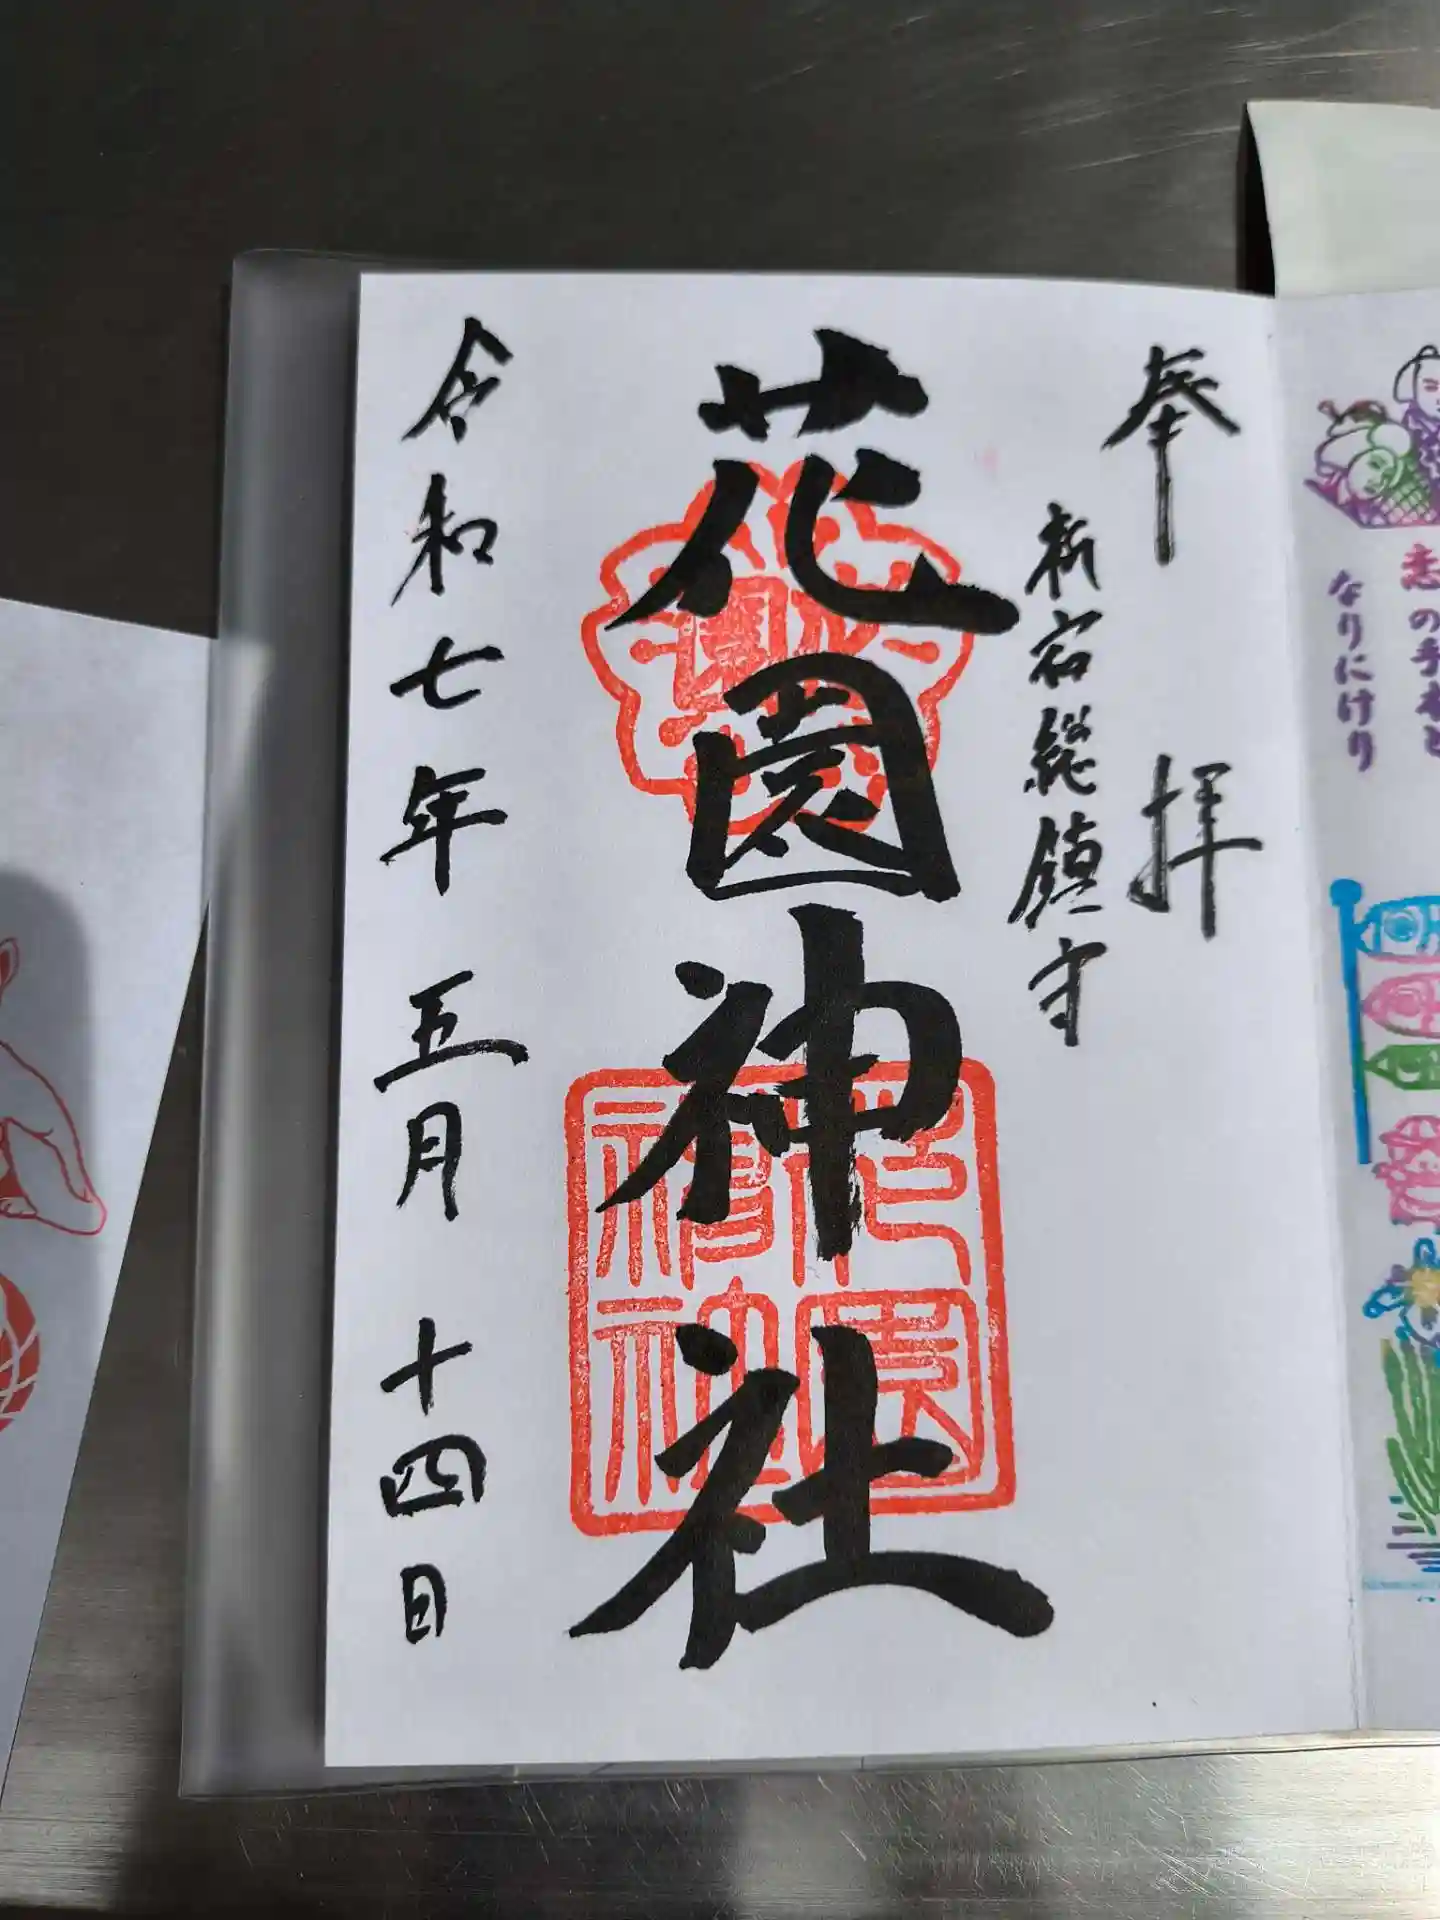 恋の手本と
なりにけり
奉拝
新宿総鎮守
花園神社
令和七年五月十四日